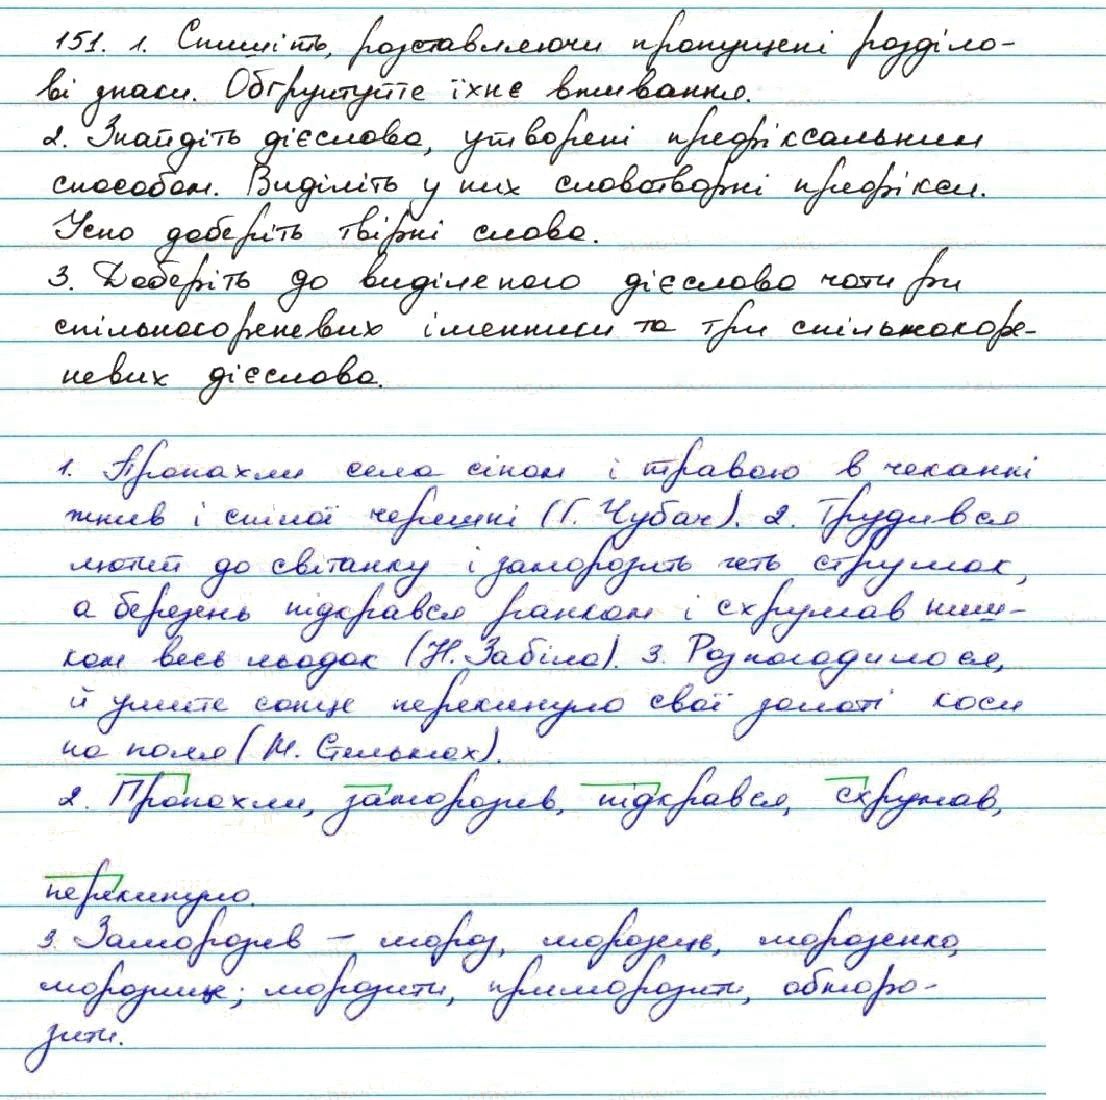 151. 1. Спишіть, розставляючи пропущені розділо-
ві знаки. Обґрунтуйте їхнє вживання.
2. Знайдіть дієслова, утворені префіксальним
способом. Виділіть у них словотворчі префікси.
Усно доберіть твірні слова.
3. Доберіть до виділеного дієслова чотири
спільнокореневих іменники та три спільнокоре-
невих дієслова.
1. Пропахли села сіном і травою в чеканні
жнив і спілої черешні (Г. Чубач). 2. Трудився
лютий до світанку і заморозить геть струмок,
а березень підкрався ранком і схрумав ниш-
ком весь льодок (Н. Забіла). 3. Розпогодилося,
й умите сонце перекинуло свої золоті коси
на поля (М. Стельмах).
2. Пропахли, заморозив, підкрався, схрумав,
перекинуло.
3. Заморозив – мороз, морозець, морозенко,
морозище; морозити, приморозити, обморо-
зити.